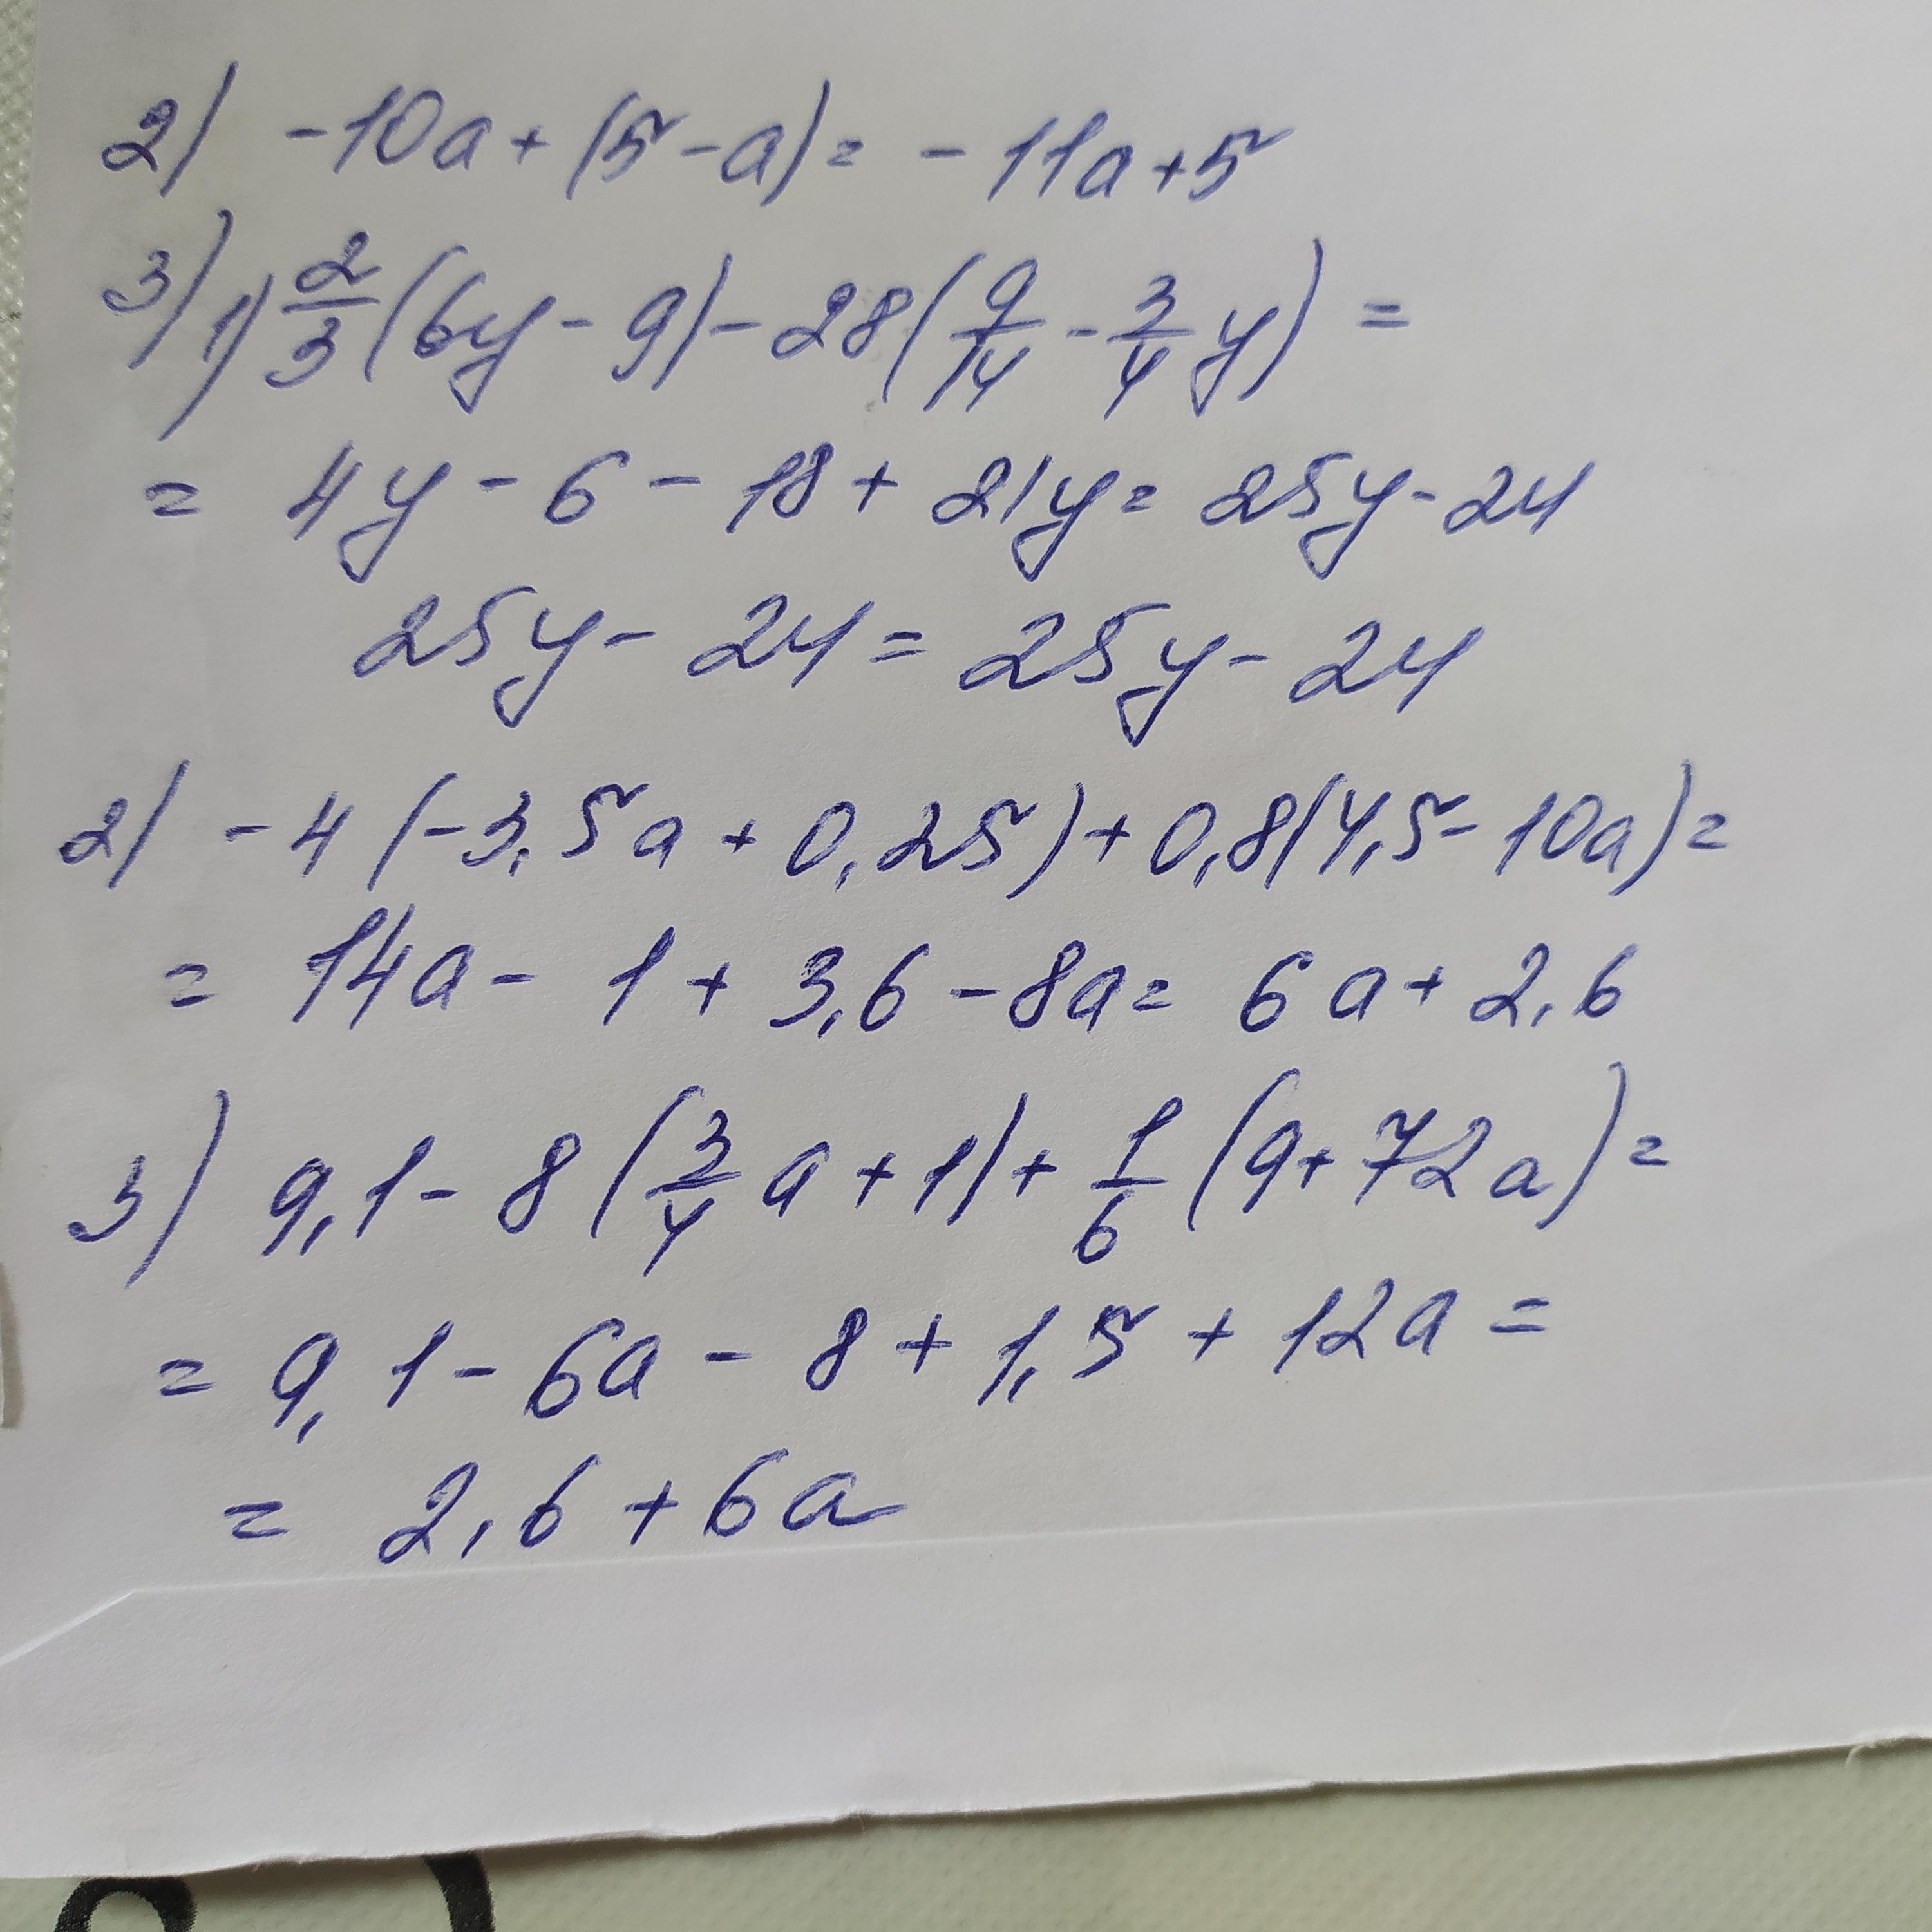 2) -10a + (5 - a) = -11a + 5
3) 1) 2/3 (6y - 9) - 28 (9/14 - 3/4 y) =
= 4y - 6 - 18 + 21y = 25y - 24
25y - 24 = 25y - 24
2) -4 (-3,5a + 0,25) + 0,8 (4,5 - 10a) =
= 14a - 1 + 3,6 - 8a = 6a + 2,6
3) 9,1 - 8 (3/4 a + 1) + 1/6 (9 + 72a) =
= 9,1 - 6a - 8 + 1,5 + 12a =
= 2,6 + 6a